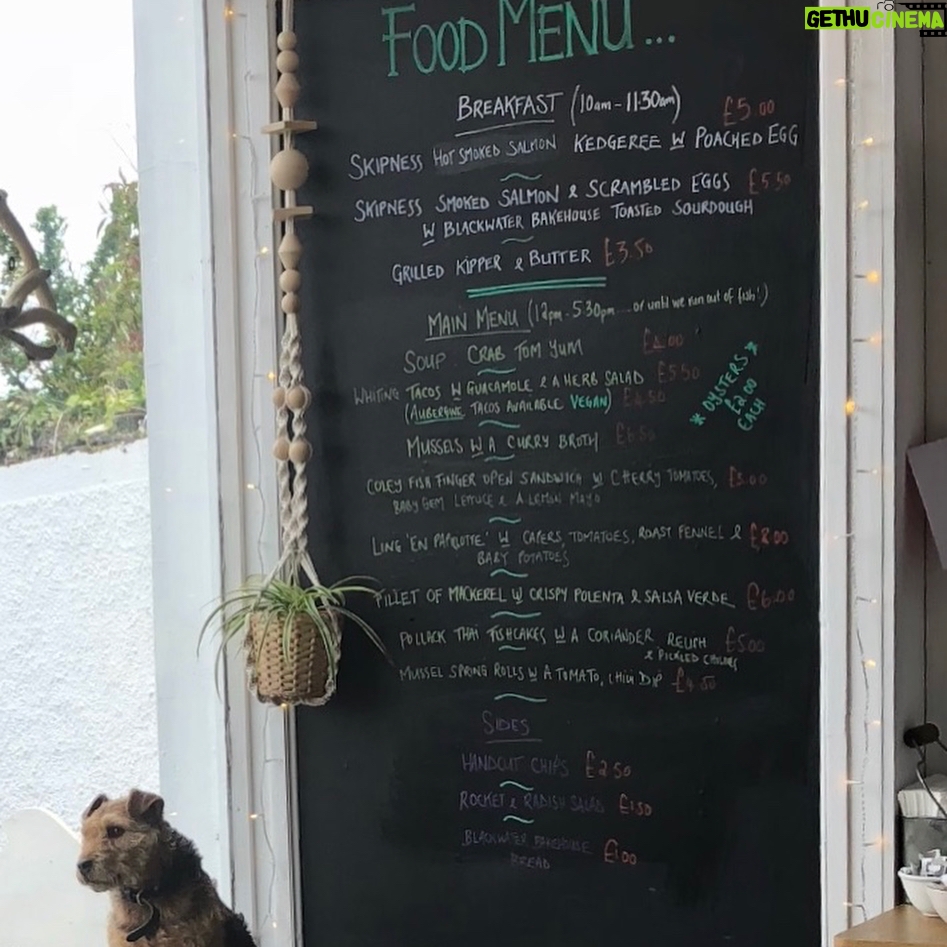 GETHUCINEMA
FOOD MENU...
BREAKFAST (10am - 11·30am) £5.00
SKIPNESS HOT SMOKED SALMON KEDGEREE W POACHED EGG
SKIPNESS SMOKED SALMON & SCRAMBLED EGGS £5.50
W BLACKWATER BAKEHOUSE TOASTED SOURDOUGH
GRILLED KIPPER & BUTTER £3.50
MAIN MENU (12pm - 5·30pm ... or until we run out of fish!)
SOUP CRAB TOM YUM
WHITING TACOS W GUACAMOLE & A HERB SALAD £5.50
(AUBERGINE TACOS AVAILABLE VEGAN) £4.50
* OYSTERS *
£2.00
EACH
MUSSELS W A CURRY BROTH £6.50
COLEY FISH FINGER OPEN SANDWICH W CHERRY TOMATOES, £5.00
BABY GEM LETTUCE & A LEMON MAYO
LING 'EN PAPILOTTE' W CAPERS, TOMATOES, ROAST FENNEL & £8.00
BABY POTATOES
FILLET OF MACKEREL W CRISPY POLENTA & SALSA VERDE £6.00
POLLACK THAI FISHCAKES W A CORIANDER RELISH £5.00
& PICKLED CHILLIES
MUSSEL SPRING ROLLS W A TOMATO, CHILLI DIP £4.50
SIDES
HANDCUT CHIPS £2.50
ROCKET & RADISH SALAD £1.50
BLACKWATER BAKEHOUSE £1.00
BREAD